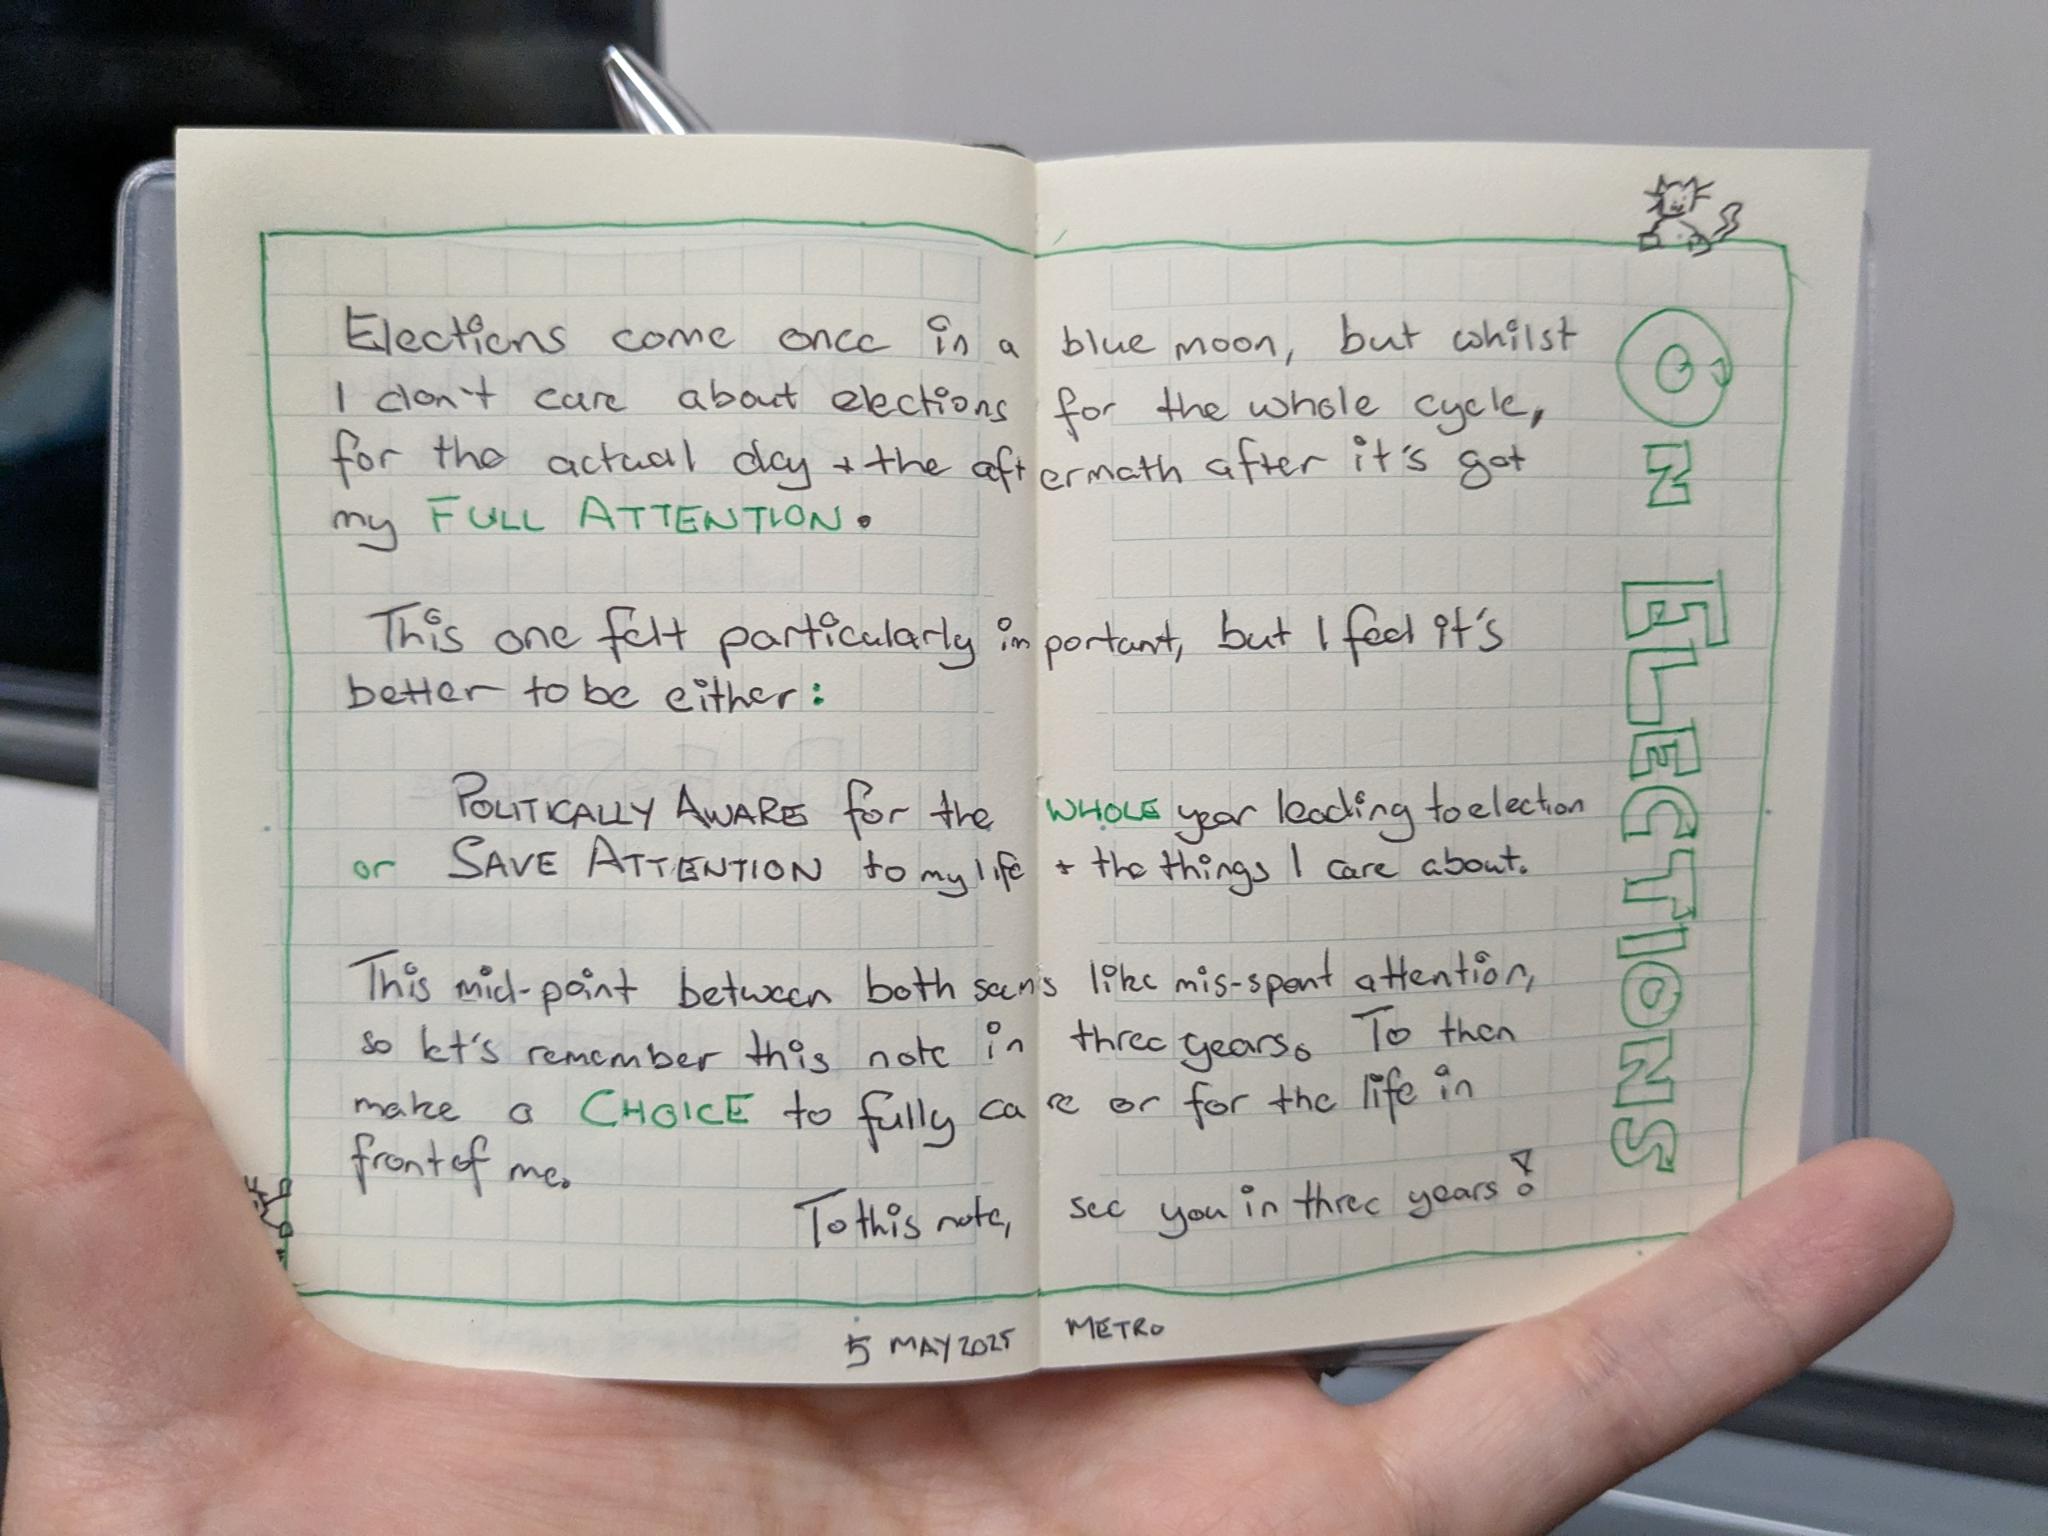 ON ELECTIONS
Elections come once in a blue moon, but whilst
I don't care about elections for the whole cycle,
for the actual day + the aftermath after it's got
my FULL ATTENTION.
This one felt particularly important, but I feel it's
better to be either:
POLITICALLY AWARE for the WHOLE year leading to election
or SAVE ATTENTION to my life + the things I care about.
This mid-point between both seems like mis-spent attention,
so let's remember this note in three years. To then
make a CHOICE to fully care or for the life in
front of me.
To this note, see you in three years!
5 MAY 2025 METRO